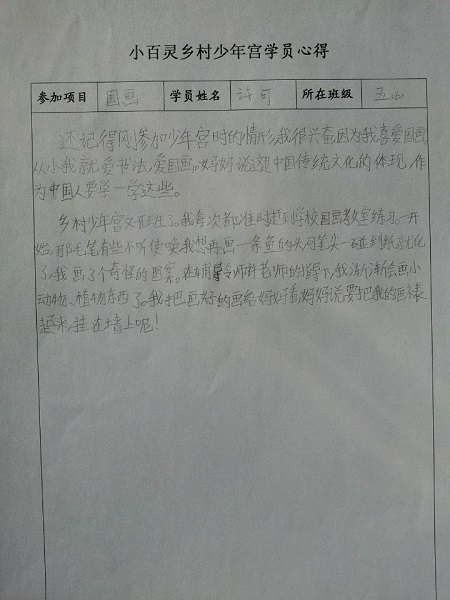 小百灵乡村少年宫学员心得
参加项目 国画 学员姓名 许可 所在班级 五(6)
还记得刚参加少年宫时的情形,我很兴奋因为我喜爱国画
从小我就爱书法,爱国画。妈妈说这是中国传统文化的体现,作
为中国人要学一学这些。
乡村少年宫又开班了。我每次都准时赶到学校国画教室练习。一开
始,那毛笔有些不听使唤,我想再画一条鱼的头可笔尖一碰到纸就化
了,我画了个奇怪的图案。在辅导老师的指导下,我渐渐会画小
动物、植物等东西了。我把画好的画给妈妈看,妈妈说要把我的画裱
起来,挂在墙上呢!